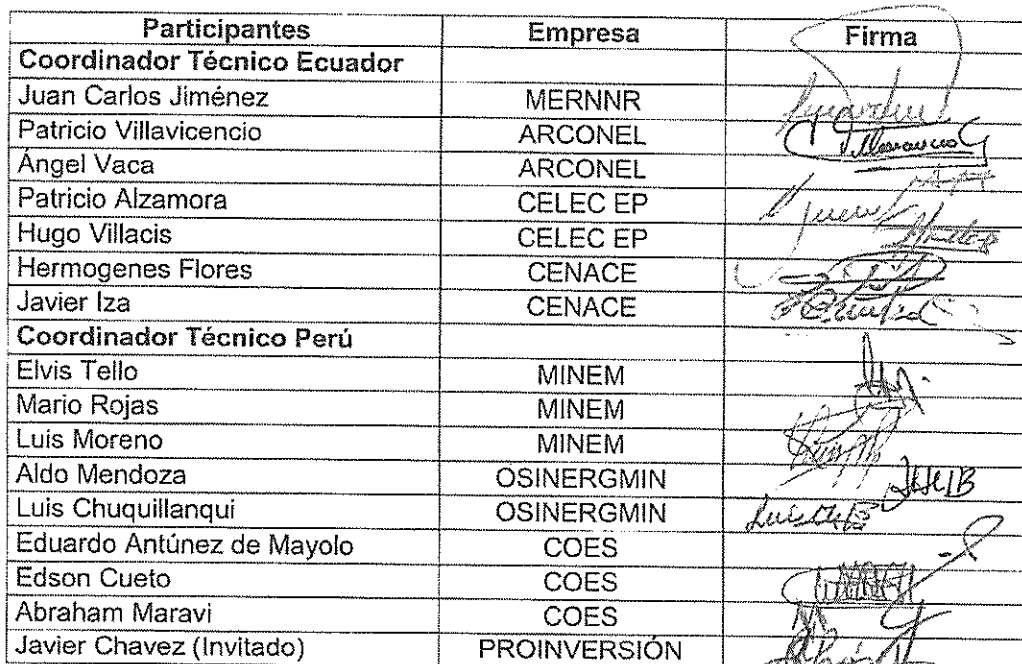 Participantes Empresa Firma
Coordinador Técnico Ecuador
Juan Carlos Jiménez MERNNR
Patricio Villavicencio ARCONEL
Ángel Vaca ARCONEL
Patricio Alzamora CELEC EP
Hugo Villacis CELEC EP
Hermogenes Flores CENACE
Javier Iza CENACE
Coordinador Técnico Perú
Elvis Tello MINEM
Mario Rojas MINEM
Luis Moreno MINEM
Aldo Mendoza OSINERGMIN
Luis Chuquillanqui OSINERGMIN
Eduardo Antúnez de Mayolo COES
Edson Cueto COES
Abraham Maravi COES
Javier Chavez (Invitado) PROINVERSIÓN